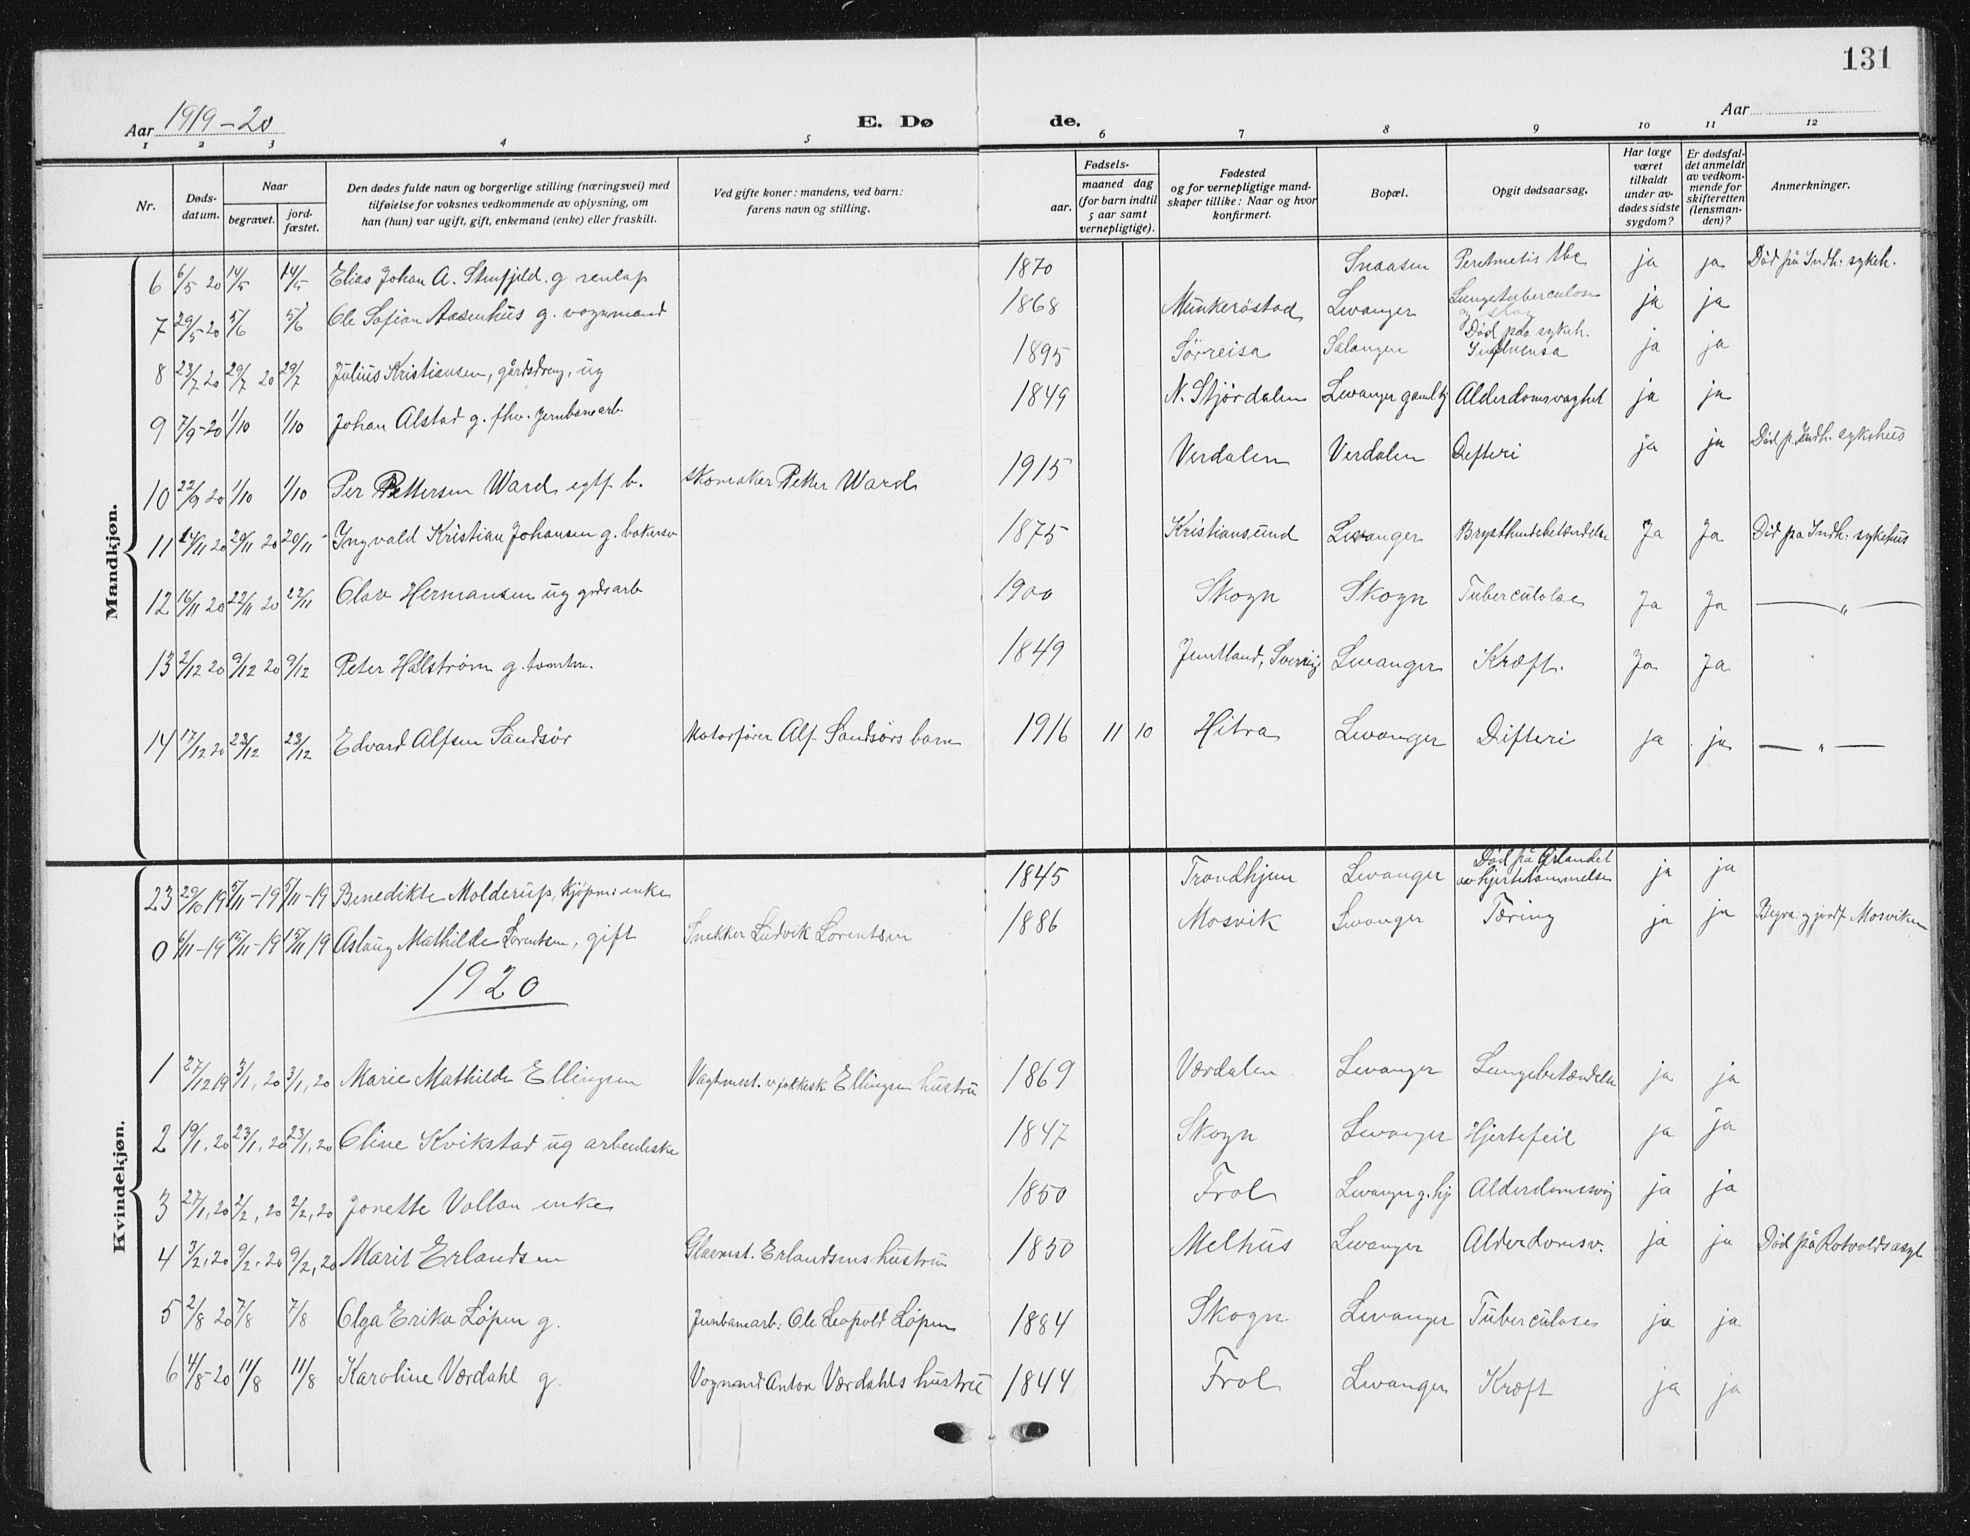 131
Aar 1919-20
E. Dø
de.
Aar
1 2 3 4 5 6 7 8 9 10 11 12
Nr.
Døds-
datum.
Naar
begravet.
jord-
fæstet.
Den dødes fulde navn og borgerlige stilling (næringsvei) med
tilføielse for voksnes vedkommende av oplysning, om
han (hun) var ugift, gift, enkemand (enke) eller fraskilt.
Ved gifte koner: mandens, ved barn:
farens navn og stilling.
Fødsels-
aar.
maaned dag
(for barn indtil
5 aar samt
vernepligtige).
Fødested
og for vernepligtige mand-
skaper tillike: Naar og hvor
konfirmert.
Bopæl.
Opgit dødsaarsag.
Har læge
været
tilkaldt
under av-
dødes sidste
sygdom?
Er dødsfal-
det anmeldt
av vedkom-
mende for
skifteretten
(lensman-
den)?
Anmerkninger.
Mandkjøn.
6 6/5 20 14/5 14/5 Elias Johan A. Stenfjeld. g renlap 1870 Snaasen tbc ja ja Død på Indh. sykeh.
7 29/5-20 5/6 5/6 Ole Sofian Aasenhus g. vognmand 1868 Munkerøstad Levanger Lungetuberculose ja ja
og slag
Død paa sykeh.
8 23/7 20 29/7 20 29/7 Julius Kristiansen, gårdsdreng, ug 1895 Sørreisa Salangen Influensa ja ja
9 7/9-20 1/10 1/10 Johan Alstad g. fhv. Jernbanearb. 1849 N. Stjørdalen Levanger gamlhj Alderdomsvaghet ja ja
10 22/9 20 1/10 1/10 Per Pettersen Ward egtf b. skomaker Petter Ward 1915 Verdalen Verdalen Defteri ja ja Død p. Indh. sykehus
11 14/11 20 20/11 20 20/11 Ingvald Kristian Johansen g. 1875 Kristiansund Levanger Brysthindebetændelse Ja Ja Død pa Indh. sykehus
12 16/11 20 22/11 20 22/11 Olav Hermansen ug grdsarb 1900 Skogn Skogn Tuberculose Ja Ja — „ —
13 2/12 20 9/12 20 9/12 Peter Hallstrøm g. tømrm. 1849 Jemtland, Sverrig Levanger Kræft. Ja Ja
14 17/12 20 23/12 23/12 Edvard Alfsen Sandsør Motorfører Alf Sandsørs barn 1916 11 10 Hitra Levanger Difteri ja ja — „ —
Kvindekjøn.
23 29/10 19 5/11-19 5/11-19 Benedikte Molderup, kjøpm: enke 1845 Trondhjem Levanger Død på Ørlandet ja ja
av hjertelammelse
0 6/11-19 15/11-19 15/11 19 Aslaug Mathilde Lorentsen, gift Snekker Ludvik Lorentsen 1886 Mosvik Levanger Tæring ja ja Begra og jordf Mosviken
1920
1 27/12 19 3/1, 20 3/1, 20 Marie Mathilde Ellingsen Vagtmest. Ellingsen hustru 1869 Værdalen Levanger Lungebetændelse ja ja
2 19/1, 20 23/1, 20 23/1, 20 Oline Kvikstad ug arbeiderske 1847 Skogn Levanger Hjertefeil ja ja
3 27/1, 20 2/2, 20 2/2, 20 Jonette Vollan enke 1850 Frol Levanger g. hj Alderdomsvag ja ja
4 3/2, 20 9/2, 20 9/2, 20 Marit Erlandsen Glasmest. Erlandsens hustru 1850 Melhus Levanger Alderdomsv. ja ja Død på Rotvolds asyl
5 2/8 20 7/8 7/8 Olga Erika Løpen g. Jernbanearb: Ole Leopold Løpen 1884 Skogn Levanger Tuberculose ja ja
6 4/8-20 11/8 11/8 Karoline Værdahl g. Vognmand Anton Værdahls hustru 1844 Frol Levanger Kræft ja ja